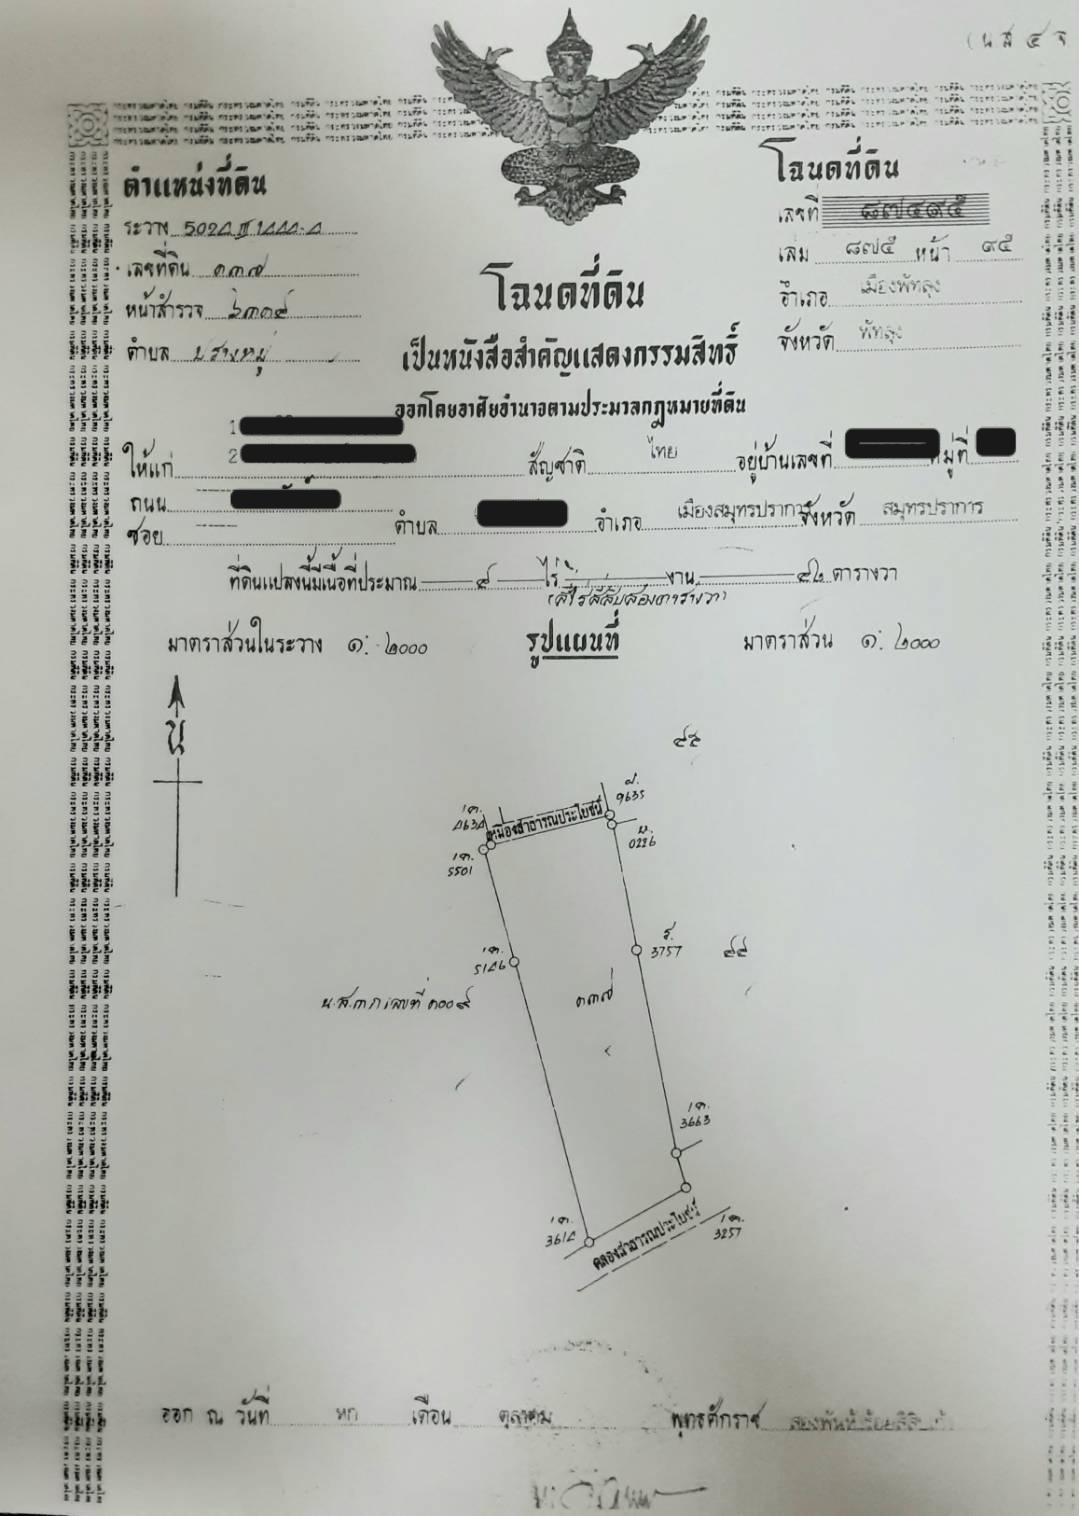 (น ส ๔ จ
ตำแหน่งที่ดิน
โฉนดที่ดิน
ระวาง
เลขที่ ๘๗๔๙๕
เลขที่ดิน ๓๓๗
เล่ม ๘๗๕ หน้า ๙๕
หน้าสำรวจ
โฉนดที่ดิน
อำเภอ เมืองพัทลุง
ตำบล ปรางหมู่
จังหวัด พัทลุง
เป็นหนังสือสำคัญแสดงกรรมสิทธิ์
ออกโดยอาศัยอำนาจตามประมวลกฎหมายที่ดิน
1
2
ให้แก่ สัญชาติ ไทย อยู่บ้านเลขที่ หมู่ที่
ถนน
ซอย ตำบล อำเภอ เมืองสมุทรปราการ จังหวัด สมุทรปราการ
ที่ดินแปลงนี้มีเนื้อที่ประมาณ ๔ ไร่ งาน ๔๒ ตารางวา
(สี่ไร่สี่สิบสองตารางวา)
มาตราส่วนในระวาง ๑: ๒๐๐๐ รูปแผนที่ มาตราส่วน ๑: ๒๐๐๐
น
๔๕
9635
เหมืองสาธารณประโยชน์
0226
5501
3757
๔๔
น.ส.๓ ก เลขที่
๓๓๗
3663
3257
คลองสาธารณประโยชน์
ออก ณ วันที่ หก เดือน ตุลาคม พุทธศักราช สองพันห้าร้อยสี่สิบเก้า